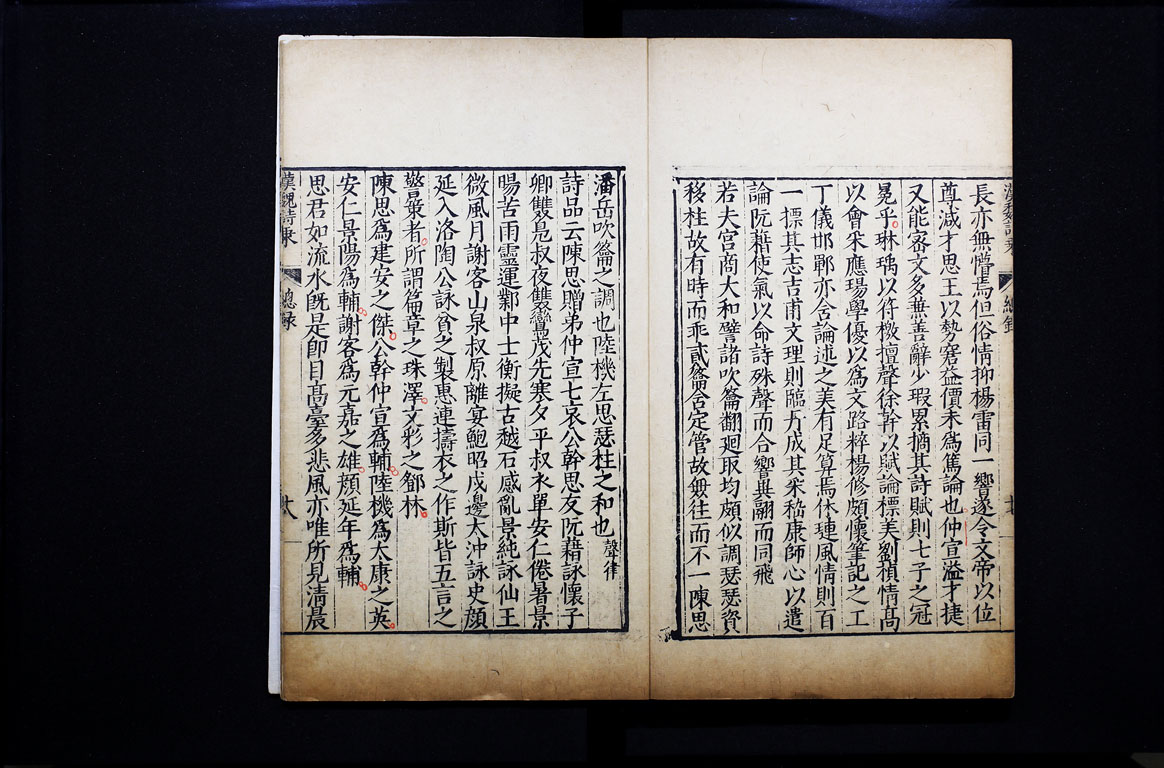 長亦無懵焉但俗情抑楊雷同一響遂令文帝以位
尊減才思王以勢窘益價未為篤論也仲宣溢才捷
又能密文多兼善辭少瑕累摘其詩賦則七子之冠
冕乎琳瑀以符檄擅聲徐幹以賦論標美劉楨情高
以會采應瑒學優以為文路粹楊修頗懷筆記之工
丁儀邯鄲亦含論述之美有足算焉休璉風情則百
一摽其志吉甫文理則臨丹成其采嵇康師心以遣
論阮藉使氣以命詩殊聲而合響異翮而同飛
若夫宮商大和譬諸吹籥翻廻取均頗似調瑟瑟資
移柱故有時而乖貳籥含定管故無往而不一陳思
漢魏詩乘
總錄
潘岳吹籥之調也陸機左思瑟柱之和也聲律
詩品云陳思贈弟仲宣七哀公幹思友阮藉詠懷子
卿雙鳬叔夜雙鸞茂先寒夕平叔衣單安仁倦暑景
暘苦雨靈運鄴中士衡擬古越石感亂景純詠仙王
微風月謝客山泉叔原離宴鮑昭戍邊太沖詠史顔
延入洛陶公詠貧之製惠連擣衣之作斯皆五言之
警策者所謂篇章之珠澤文彩之鄧林
陳思為建安之傑公幹仲宣為輔陸機為太康之英
安仁景陽為輔謝客為元嘉之雄顔延年為輔
思君如流水旣是卽目髙臺多悲風亦唯所見淸晨
漢魏詩乘
總錄
廿八